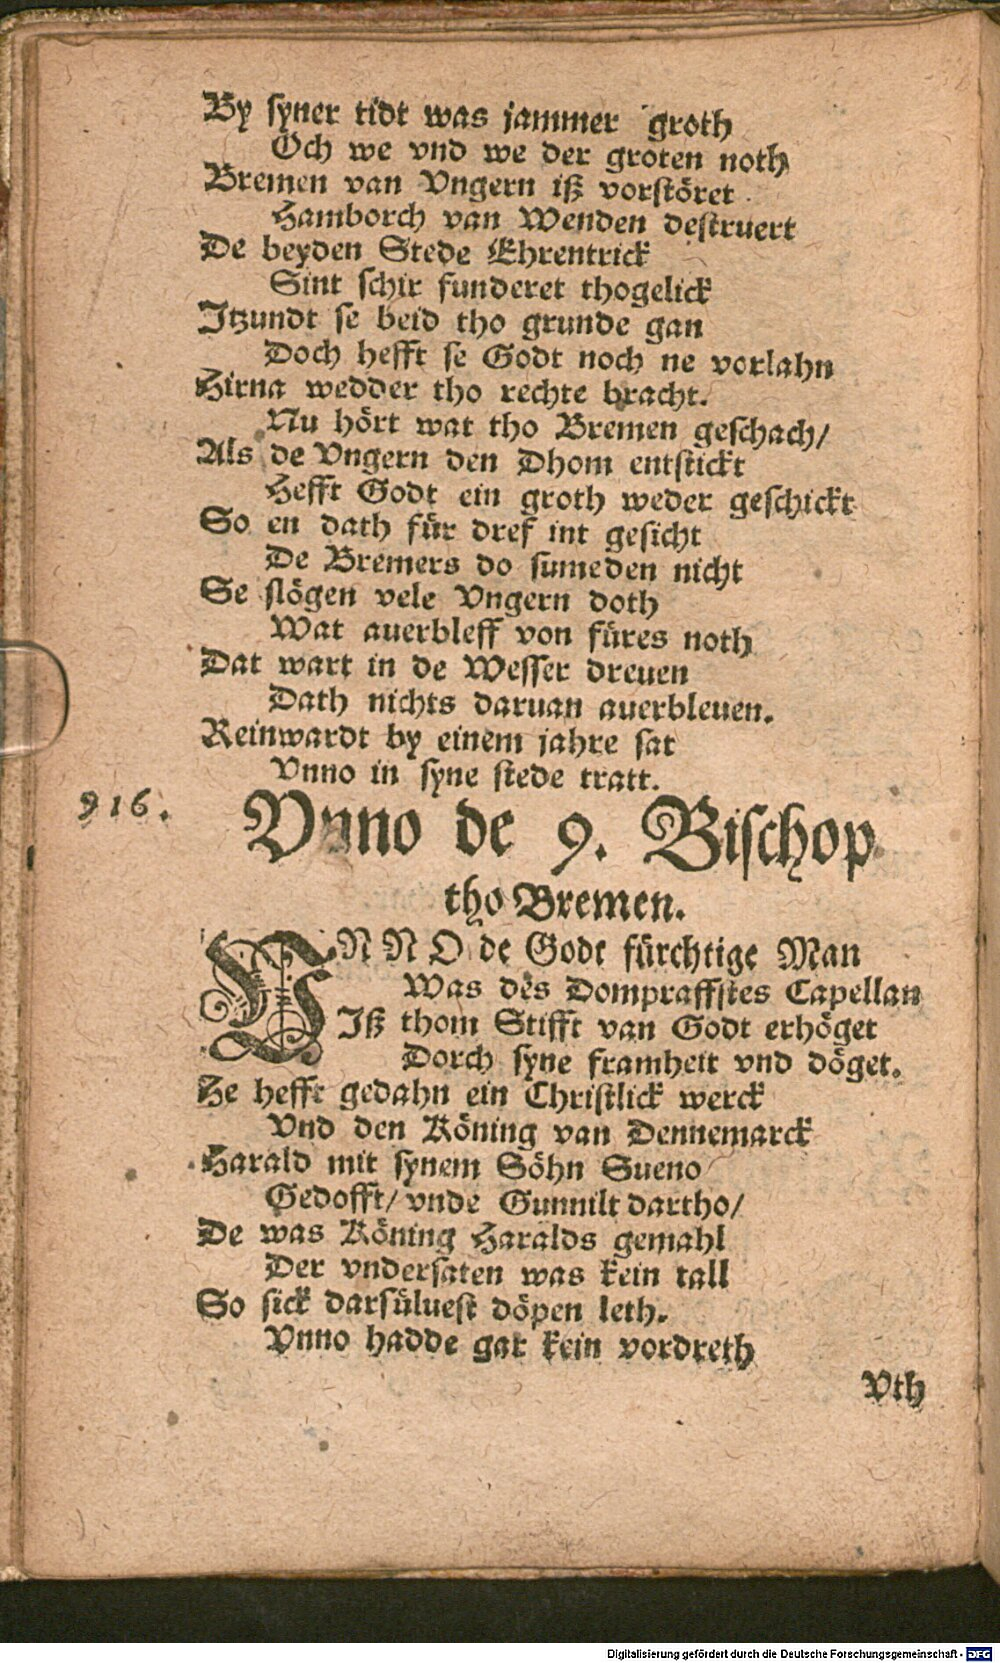 By syner tidt was jammer groth
Och we vnd we der groten noth
Bremen van Vngern iß vorstöret
Hamborch van Wenden destruert
De beyden Stede Ehrentrick
Sint schir funderet thogelick
Itzundt se beid tho grunde gan
Doch hefft se Godt noch ne vorlahn
Hirna wedder tho rechte bracht.
Nu hört wat tho Bremen geschach/
Als de Vngern den Dhom entstickt
Hefft Godt ein groth weder geschickt
So en dath für dref int gesicht
De Bremers do sumeden nicht
Se slögen vele Vngern doth
Wat auerbleff von füres noth
Dat wart in de Wesser dreuen
Dath nichts daruan auerbleuen.
Reinwardt by einem jahre sat
Vnno in syne stede tratt.
916.
Vnno de 9. Bischop
tho Bremen.
VNNO de Godt fürchtige Man
Was des Dompraffstes Capellan
Iß thom Stifft van Godt erhöget
Dorch syne framheit vnd döget.
He hefft gedahn ein Christlick werck
Vnd den Köning van Dennemarck
Harald mit synem Söhn Sueno
Gedofft/ vnde Gunnilt dartho/
De was Köning Haralds gemahl
Der vndersaten was kein tall
So sick darsüluest döpen leth.
Vnno hadde gar kein vordreth
Vth
Digitalisierung gefördert durch die Deutsche Forschungsgemeinschaft - DFG